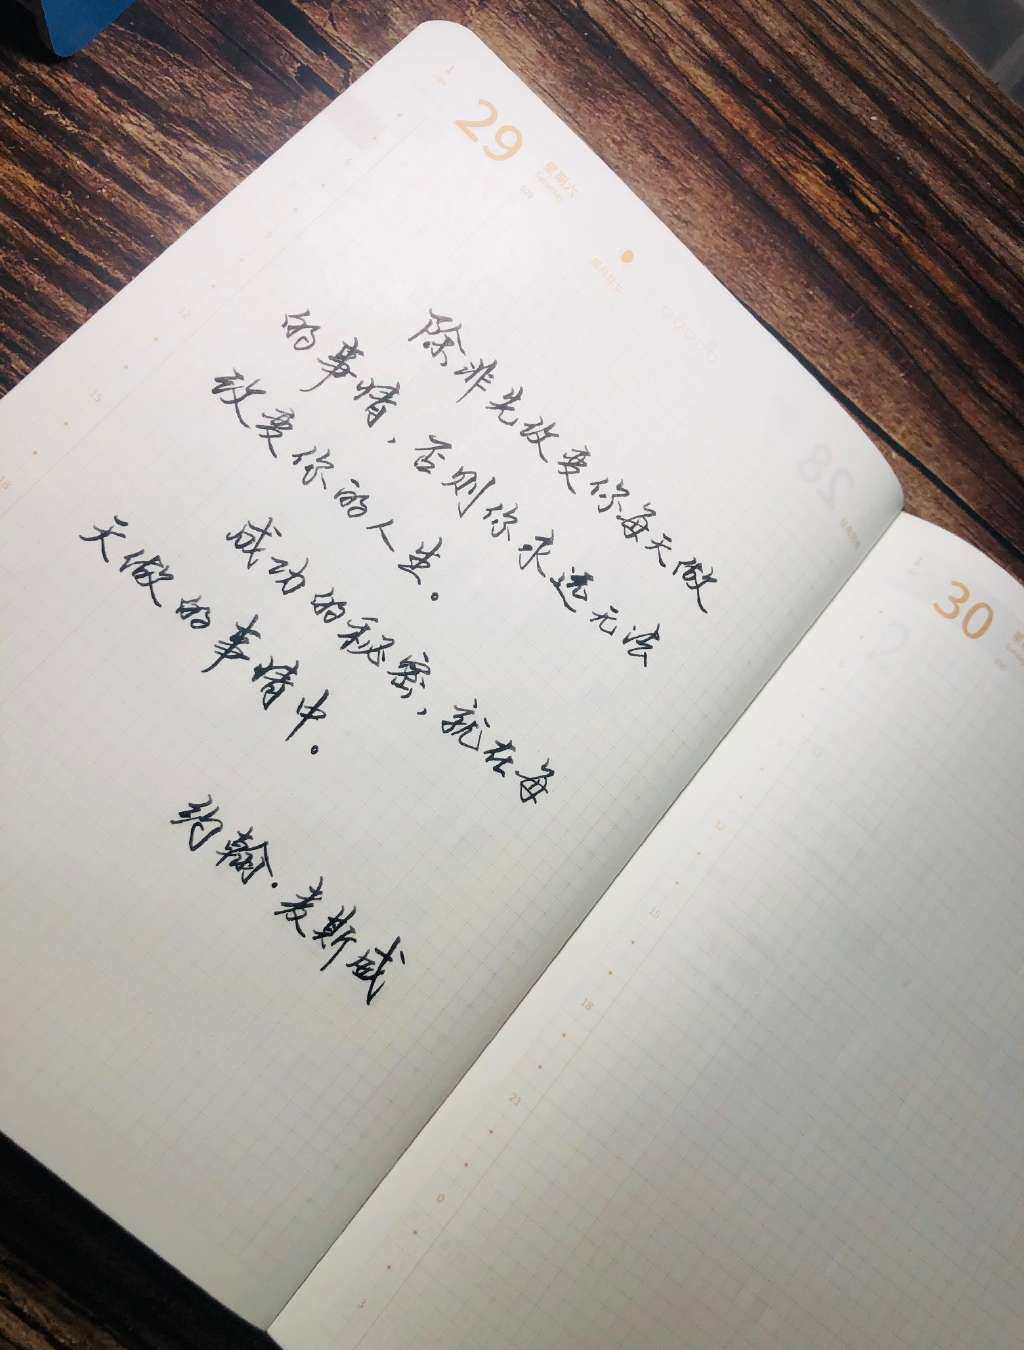 29
星期六
除非先改变你每天做
的事情，否则你永远无法
改变你的人生。
成功的秘密，就在每
天做的事情中。
约翰·麦斯威
6
9
12
15
18
28
30
12
15
18
21
0
3